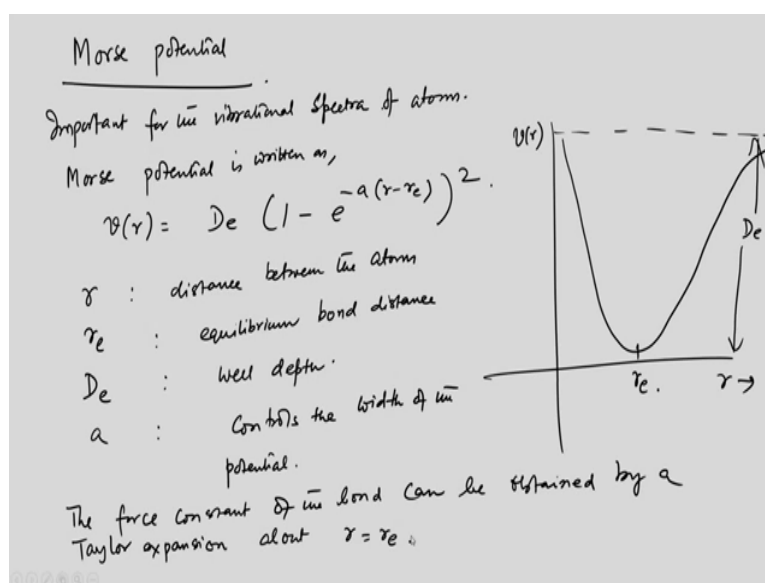 Morse potential
Important for the vibrational spectra of atoms.
Morse potential is written as,
v(r) = De (1 - e^{-a(r-re)})^2.
r : distance between the atom
re : equilibrium bond distance
De : well depth.
a : Controls the width of the
potential.
The force constant of the bond can be obtained by a
Taylor expansion about r = re.
v(r)
De
re.
r →